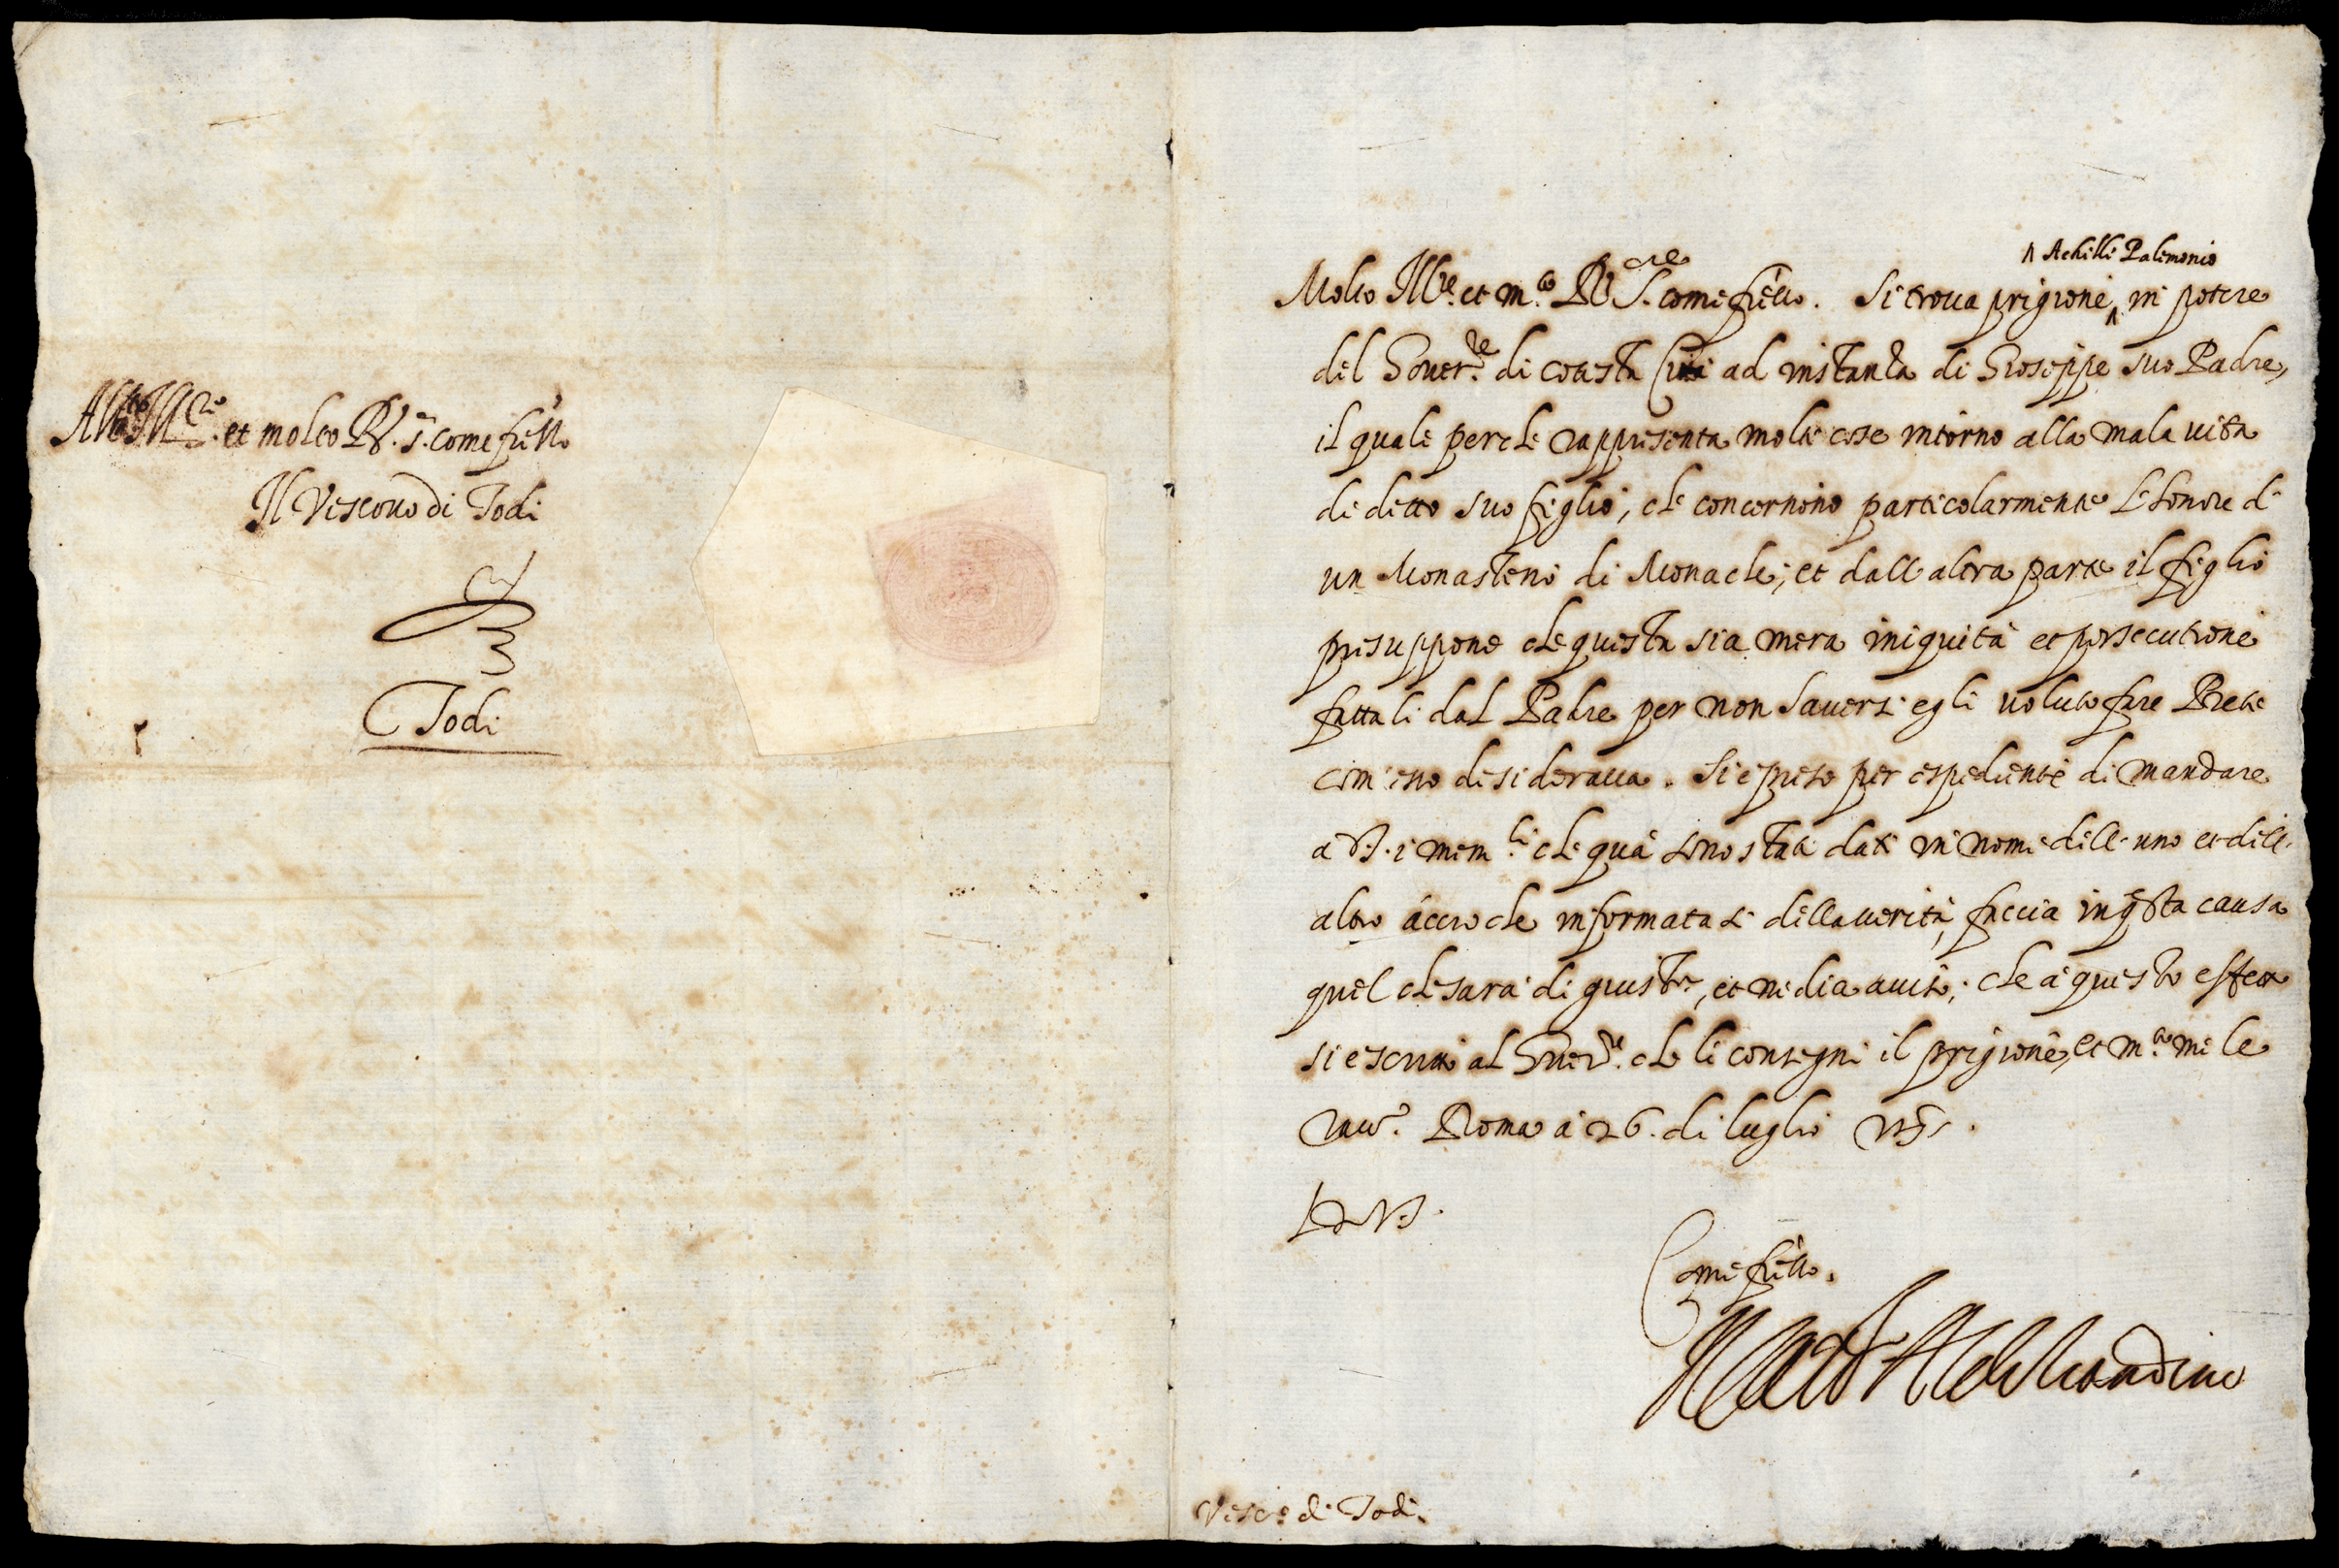 All Ill.re et molto R.do S.r come fr͞ello
Il Vescouo di Todi
Todi
Achille Palemonio
Molto Ill.re et m.to R.do S.re come fr͞ello. Si troua prigione ^ in potere
del Gouer.re di cotesta Città ad instanza di Gioseppe suo Padre,
il quale perche rappresenta molte cose intorno alla mala uita
di detto suo figlio, che concernono particolarmente l'honore d'
un Monasterio di Monache; et dall'altra parte il figlio
presuppone che questa sia mera iniquità et persecutione
fattali dal Padre per non hauersi egli uoluto fare Prete
com'esso desideraua. Si è preso per espediente di mandare
a V.S. i mem.li che quà sono stati dati in nome dell'uno et dell'
altro acciò che informatasi della uerità, faccia in q͞sta causa
quel che sarà di giust.a, et ne dia auiso; che à questo effetto
si è scritto al Gouer.re che li consegni il prigione, et m.to me le
racc.o. Roma à 26. di luglio
D V.S.
Come fr͞ello.
Il Card.l Aldobrandino
Vesc.o di Todi.